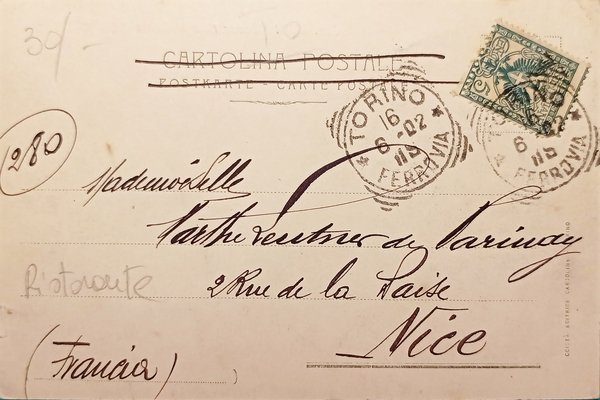 30/-
CARTOLINA POSTALE
POSTKARTE - CARTE POSTALE
5
TORINO
16
6-02
11S
FERROVIA
TORINO
6
11S
FERROVIA
280
Mademoiselle
Marthe de Parinay
Ristorante
2 Rue de la Paise
Nice
(Francia)